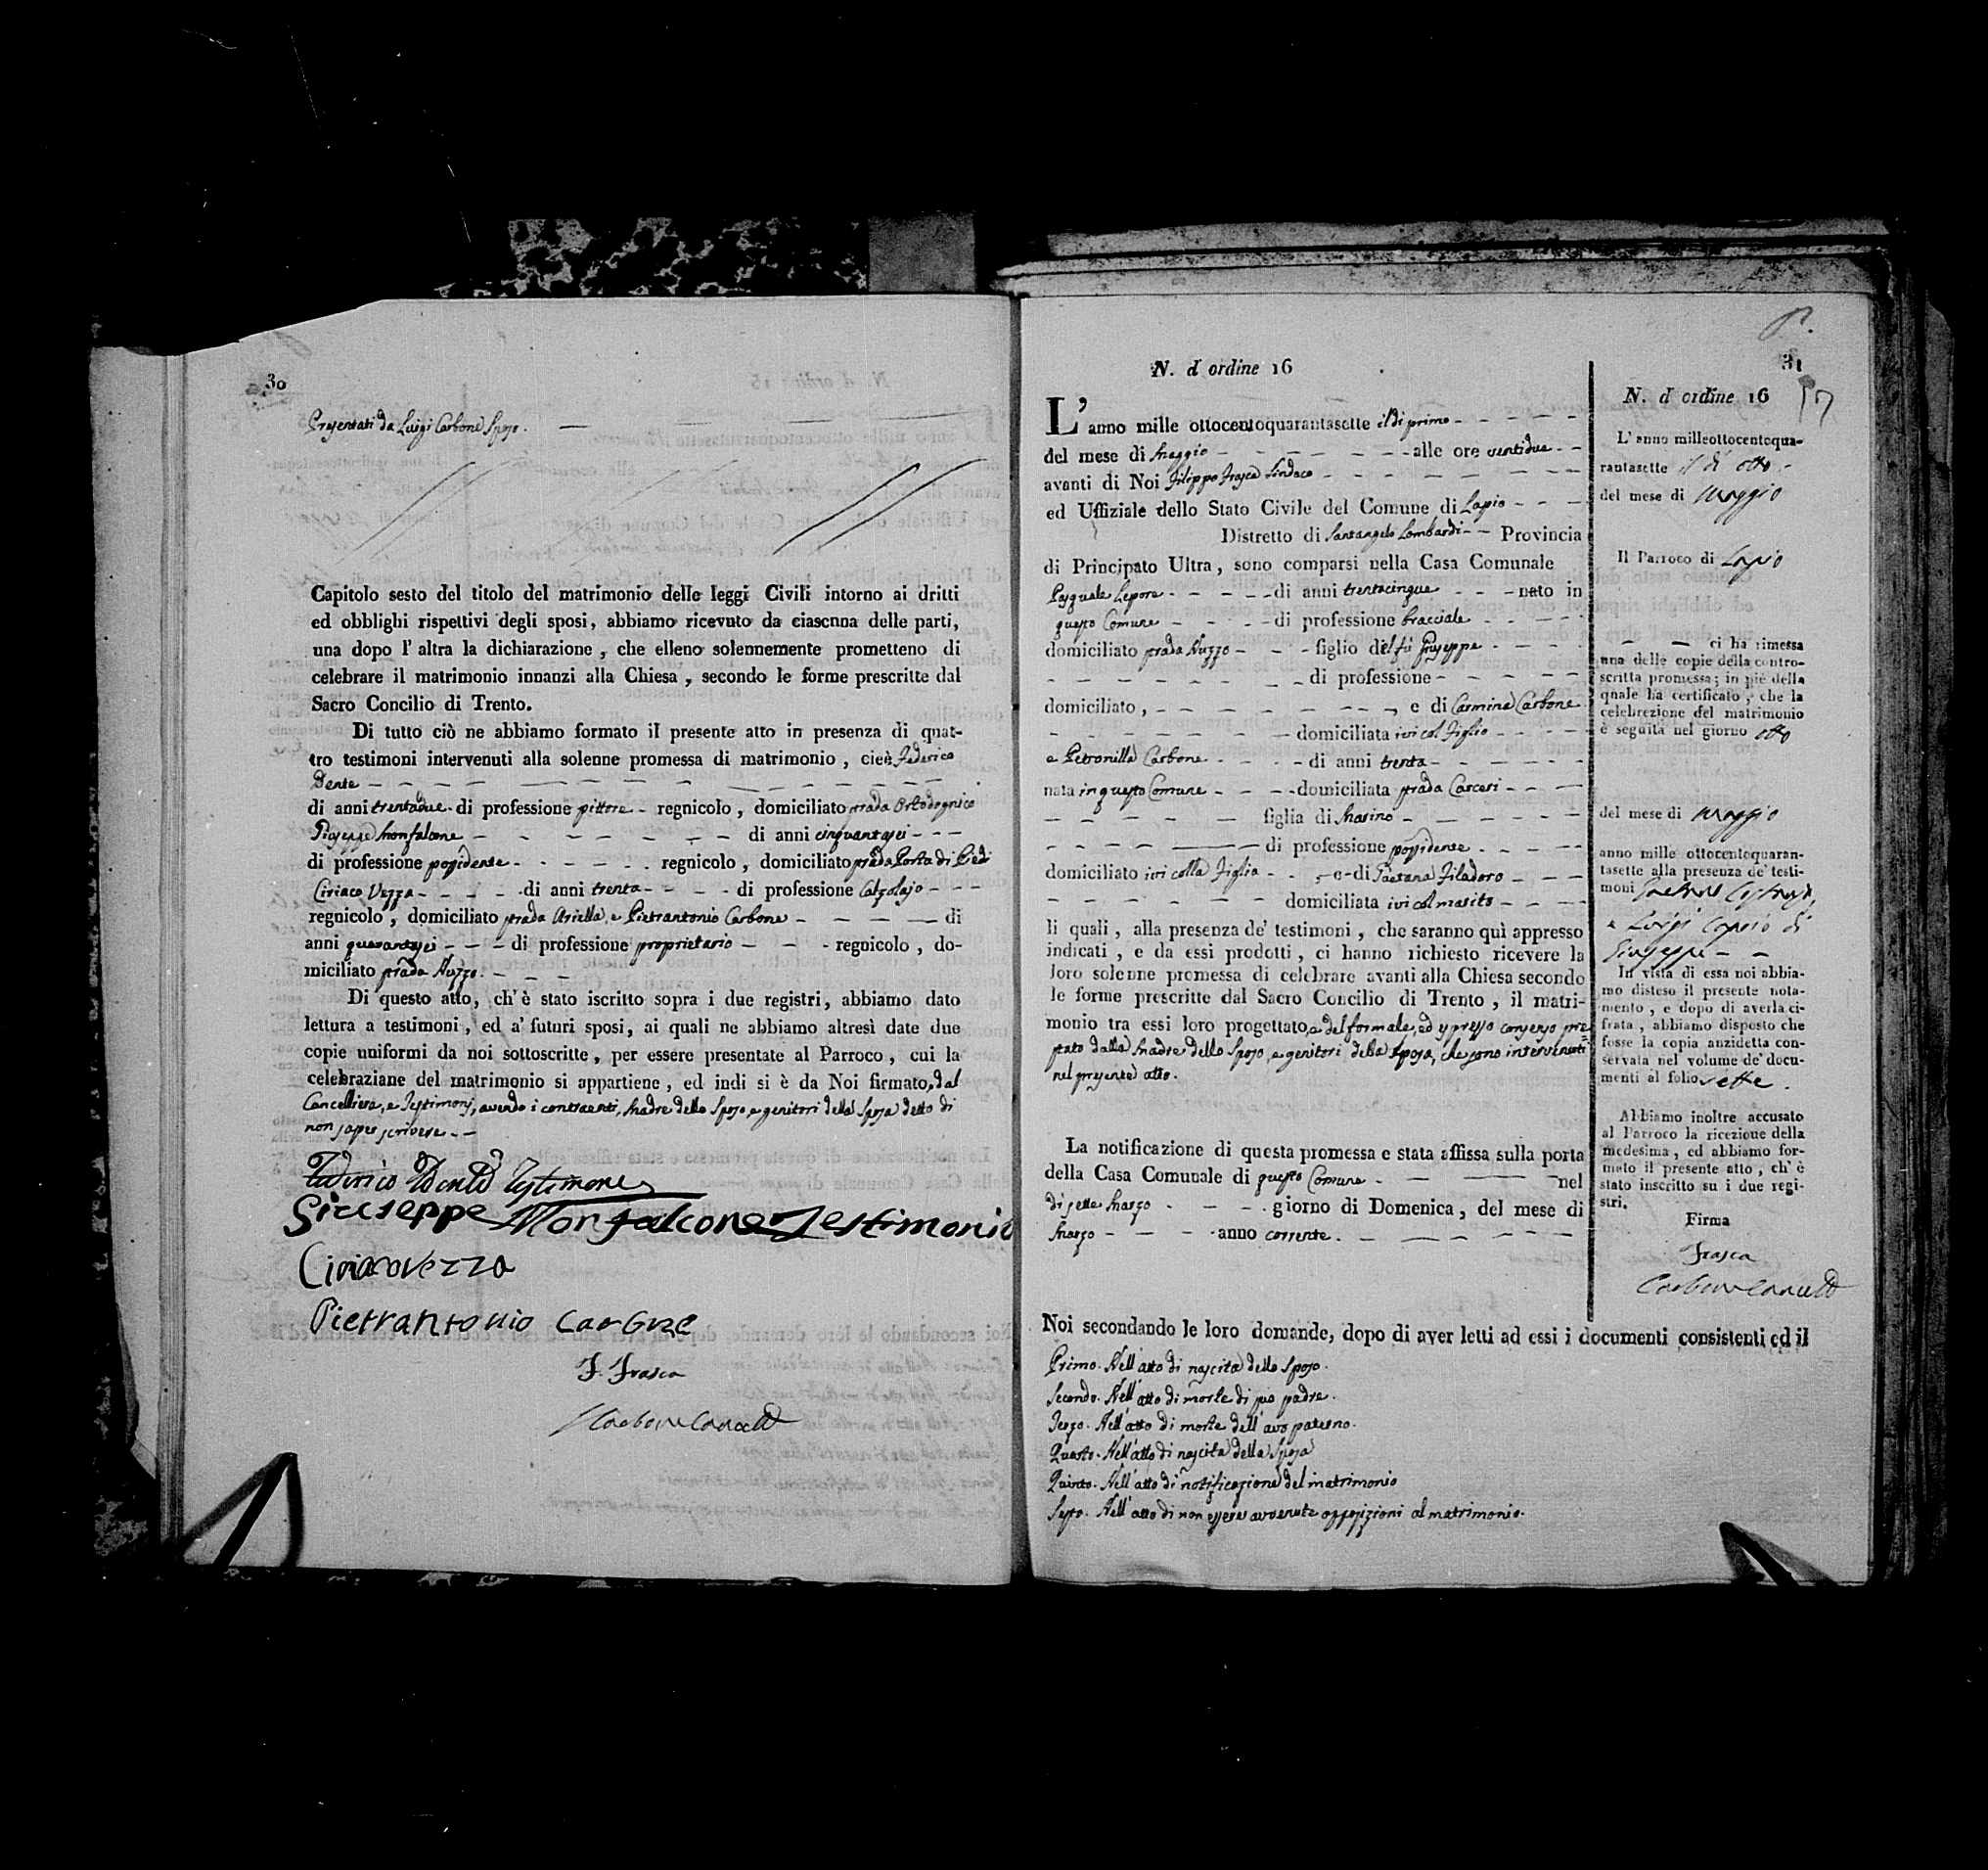 30
Presentati da Luigi Carbone Sposo.
Capitolo sesto del titolo del matrimonio delle leggi Civili intorno ai dritti
ed obblighi rispettivi degli sposi, abbiamo ricevuto da ciascnna delle parti,
una dopo l'altra la dichiarazione, che elleno solennemente prometteno di
celebrare il matrimonio innanzi alla Chiesa, secondo le forme prescritte dal
Sacro Concilio di Trento.
Di tutto ciò ne abbiamo formato il presente atto in presenza di quat-
tro testimoni intervenuti alla solenne promessa di matrimonio, cioè Federico
Dente
di anni trentadue di professione pittore regnicolo, domiciliato strada Ortodognico
Giuseppe Monfalcone di anni cinquantasei
di professione possidente regnicolo, domiciliato strada Porta di Piedi
Ciriaco Vezza di anni trenta di professione Calzolajo
regnicolo, domiciliato strada Ariella, e Pietrantonio Carbone di
anni quarantasei di professione proprietario regnicolo, do-
miciliato strada Nuzzo.
Di questo atto, ch'è stato iscritto sopra i due registri, abbiamo dato
lettura a testimoni, ed a' futuri sposi, ai quali ne abbiamo altresì date due
copie uniformi da noi sottoscritte, per essere presentate al Parroco, cui la
celebraziane del matrimonio si appartiene, ed indi si è da Noi firmato, dal
Cancelliere, e Testimonj, avendo i contraenti, Madre dello Sposo, e genitori della Sposa detto di
non saper scrivere
Federico Dente Testimone
Giuseppe Monfalcone Testimonio
Ciriaco Vezza
Pietrantonio Carbone
F. Frasca
Carbone Cancell
31
17
N. d ordine 16
L'anno mille ottocentoquarantasette il dì primo
del mese di Maggio alle ore ventidue
avanti di Noi Filippo Frasca Sindaco
ed Uffiziale dello Stato Civile del Comune di Lapio
Distretto di Santangelo Lombardi Provincia
di Principato Ultra, sono comparsi nella Casa Comunale
Pasquale Lepore di anni trentacinque nato in
questo Comune di professione bracciale
domiciliato strada Nuzzo figlio del fù Giuseppe
di professione
domiciliato, e di Carmina Carbone
domiciliata ivi col figlio
e Petronilla Carbone di anni trenta
nata in questo Comune domiciliata strada Carceri
figlia di Marino
di professione possidente
domiciliato ivi colla figlia e di Gaetana Filadoro
domiciliata ivi col marito
li quali, alla presenza de' testimoni, che saranno quì appresso
indicati, e da essi prodotti, ci hanno richiesto ricevere la
loro solenne promessa di celebrare avanti alla Chiesa secondo
le forme prescritte dal Sacro Concilio di Trento, il matri-
monio tra essi loro progettato, e del formale, ed espresso consenso pre-
stato dalla Madre dello Sposo, e genitori della Sposa, che sono intervenuti
nel presente atto.
La notificazione di questa promessa e stata affissa sulla porta
della Casa Comunale di questo Comune nel
dì sette Marzo giorno di Domenica, del mese di
Marzo anno corrente.
Noi secondando le loro domande, dopo di aver letti ad essi i documenti consistenti ed il
Primo. Nell'atto di nascita dello Sposo.
Secondo. Nell'atto di morte di suo padre.
Terzo. Nell'atto di morte dell'avo paterno.
Quarto. Nell'atto di nascita della Sposa
Quinto. Nell'atto di notificazione del matrimonio
Sesto. Nell'atto di non essere avvenute opposizioni al matrimonio.
N. d ordine 16
L'anno milleottocentoqua-
rantasette il dì otto
del mese di Maggio
Il Parroco di Lapio
ci ha rimessa
una delle copie della contro-
scritta promessa; in piè della
quale ha certificato, che la
celebrezione del matrimonio
è seguita nel giorno otto
del mese di Maggio
anno mille ottocentoquaran-
tasette alla presenza de' testi-
moni
e Luigi di
Giuseppe
In vista di essa noi abbia-
mo disteso il presente nota-
mento, e dopo di averla ci-
frata, abbiamo disposto che
fosse la copia anzidetta con-
servata nel volume de' docu-
menti al folio sette.
Abbiamo inoltre accusato
al Parroco la ricezione della
medesima, ed abbiamo for-
mato il presente atto, ch'è
stato inscritto su i due regi-
stri.
Firma
Frasca
Carbone Cancell